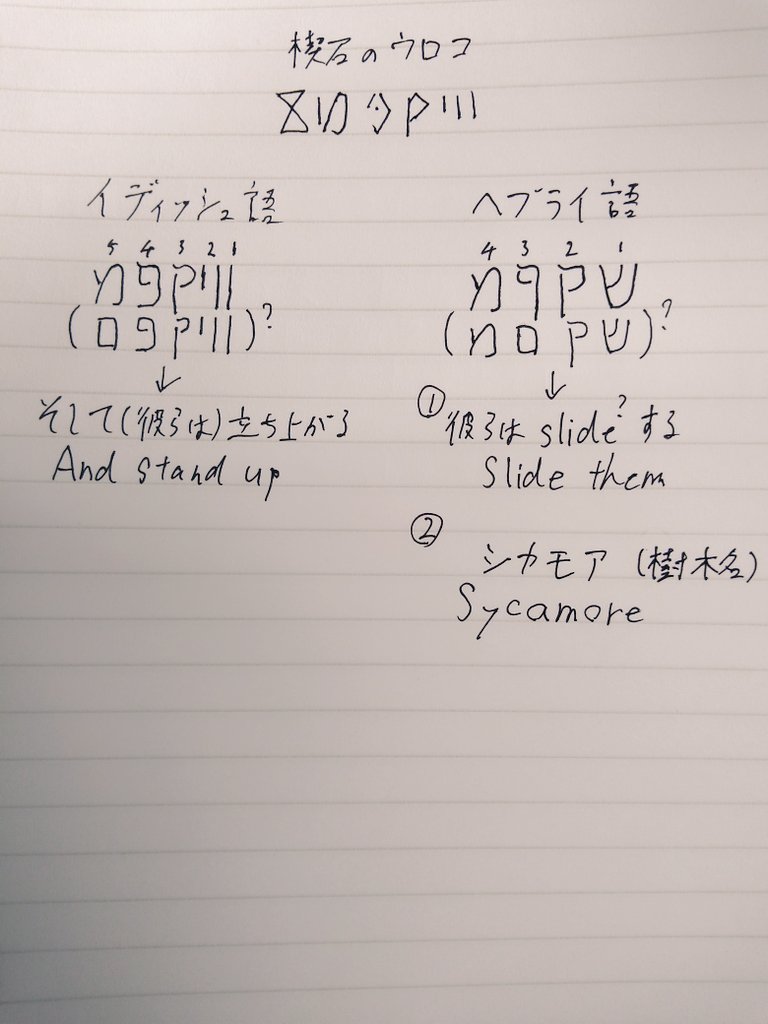 楔石のウロコ
イディッシュ語
5 4 3 2 1
מפקווו
(םפקווו)?
↓
そして(彼らは)立ち上がる
And stand up
ヘブライ語
4 3 2 1
מףקש
(מםקש)?
↓
① 彼らは slide? する
Slide them
② シカモア (樹木名)
Sycamore